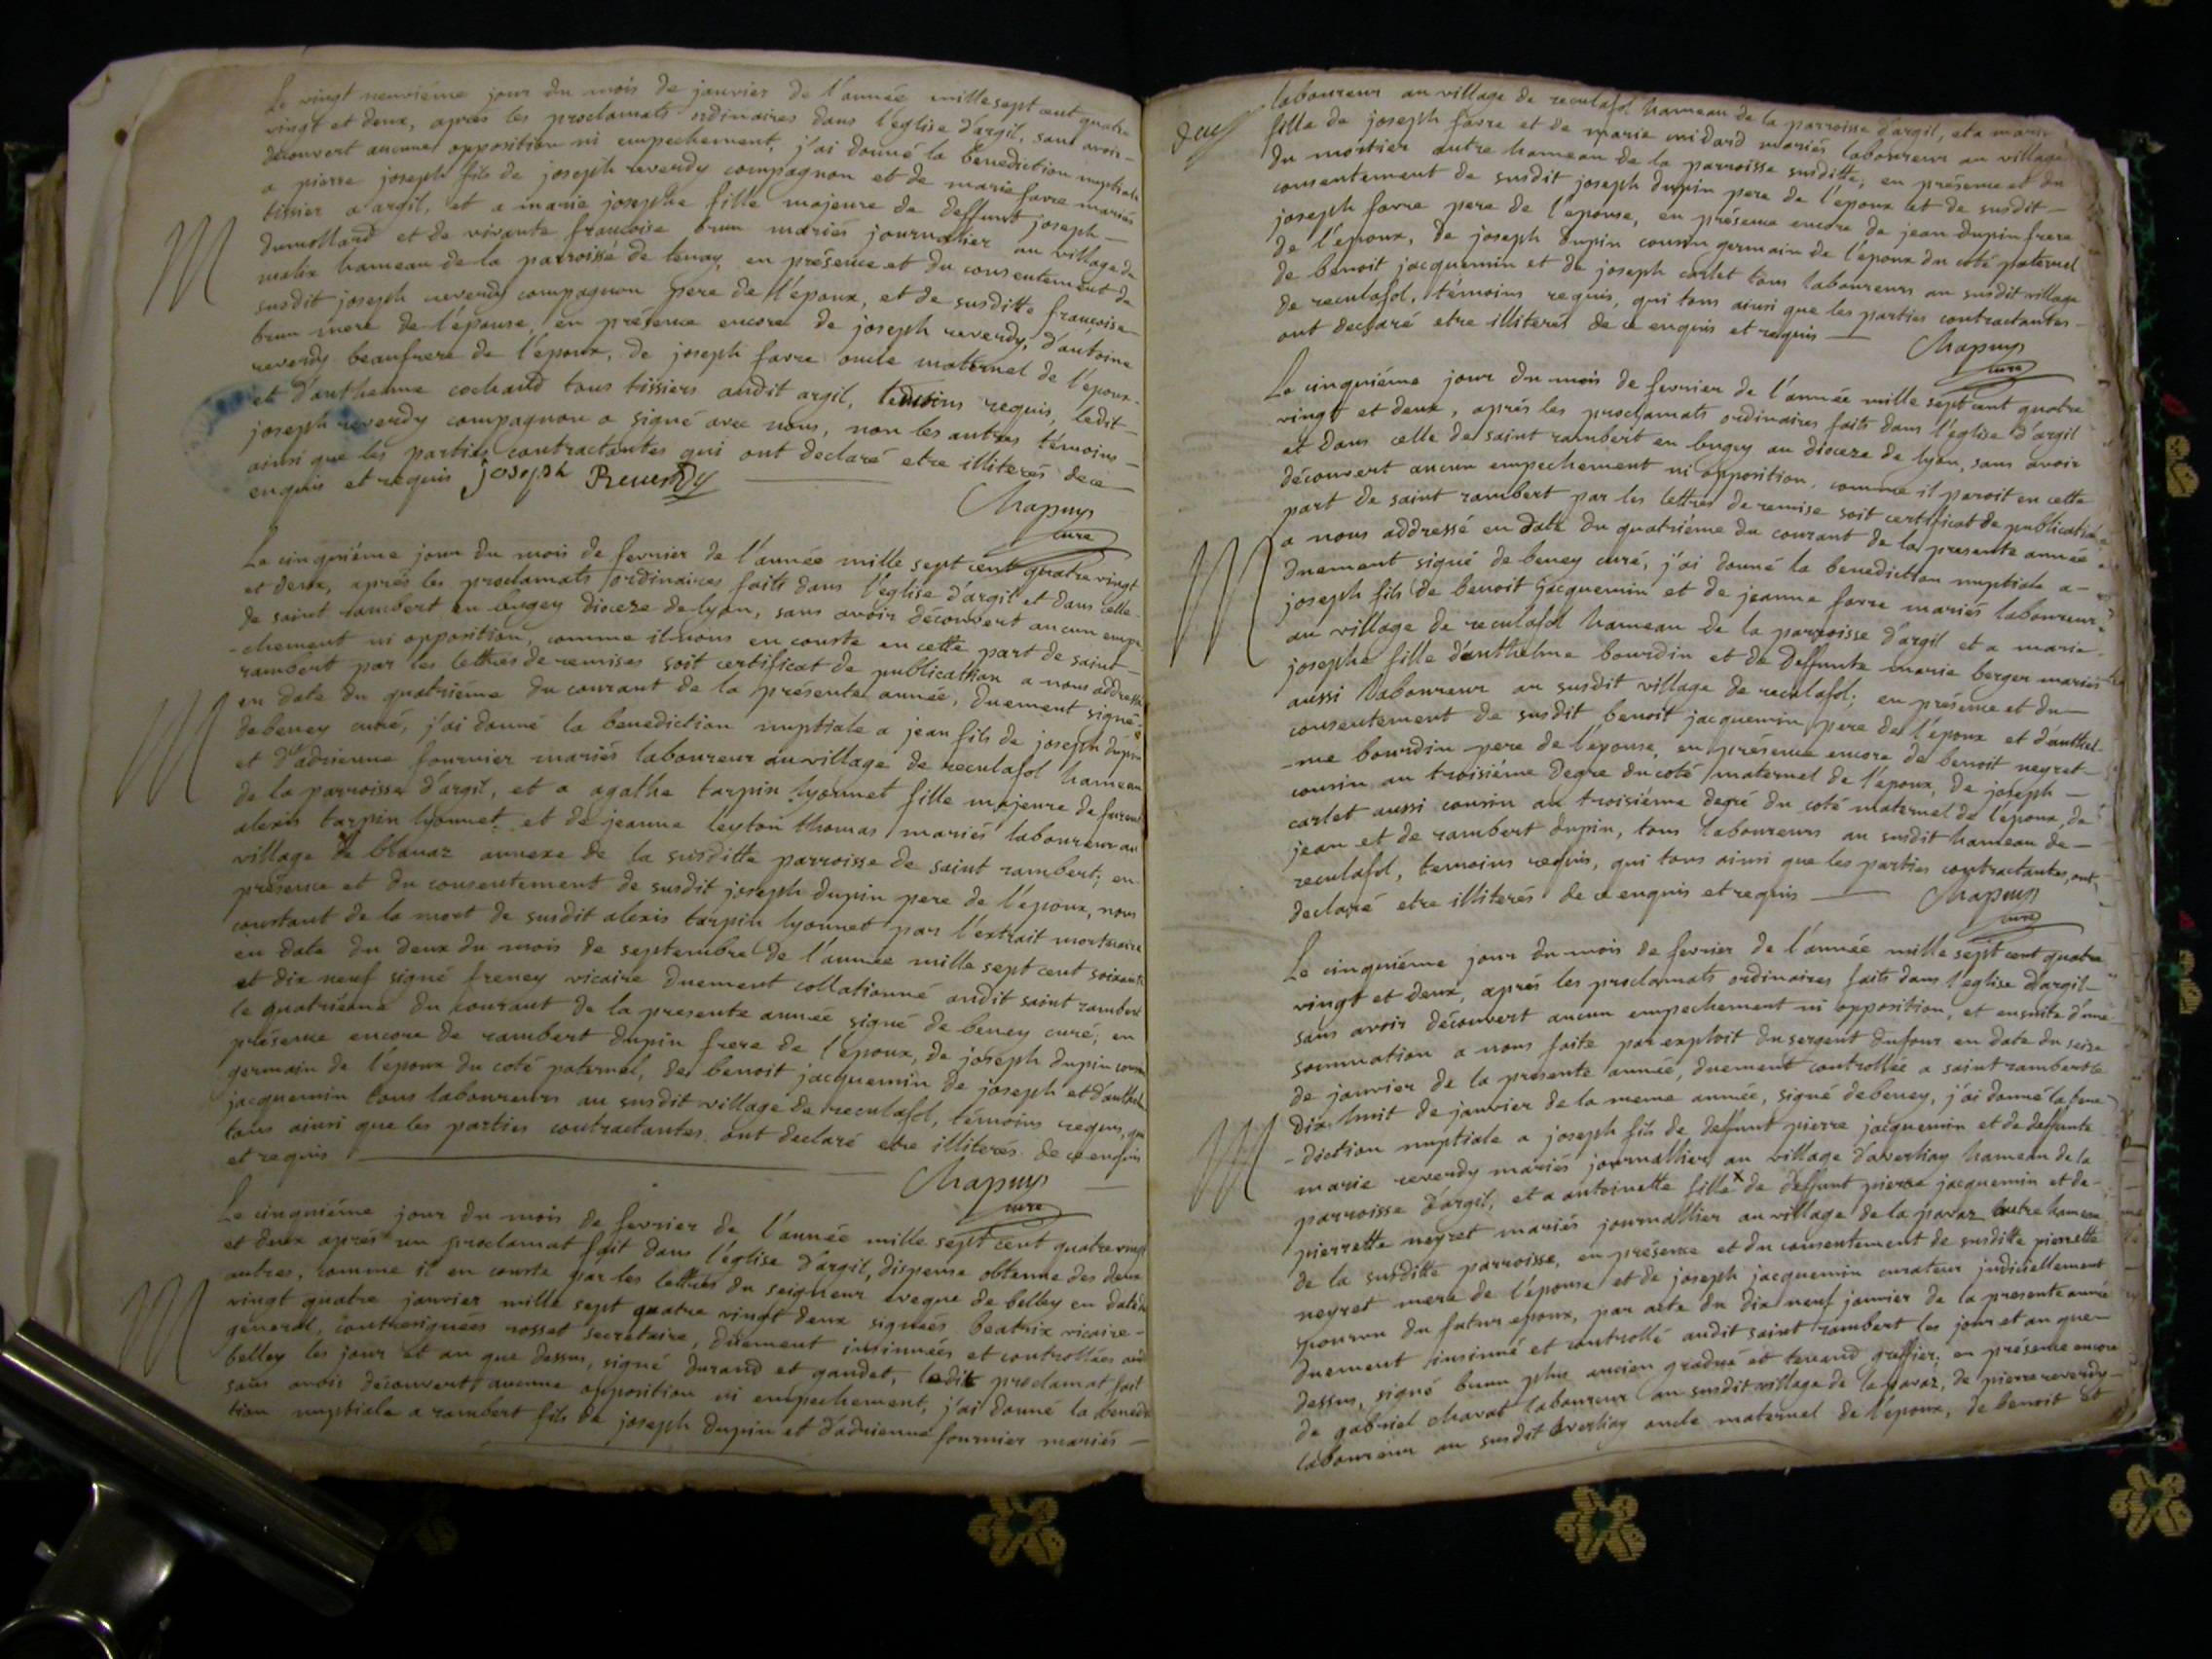 Le vingt neuviéme jour du mois de janvier de l'année mille sept cent quatre
vingt et deux, aprés les proclamats ordinaires dans l'eglise d'argil, sans avoir
découvert aucune opposition ni empechement, j'ai donné la benediction nuptiale
a pierre joseph fils de joseph reverdy compagnon et de marie favre mariés
tissier a argil, et a marie josephe fille majeure de deffunt joseph
dumollard et de vivante françoise brun mariés journalier au village de
malix hameau de la parroisse de tenay, en présence et du consentement de
susdit joseph reverdy compagnon pere de l'époux, et de susditte françoise
brun mere de l'épouse, en présence encore de joseph reverdy, d'antoine
reverdy beaufrere de l'époux, de joseph favre oncle maternel de l'époux
et d'anthelme cochand tous tissiers audit argil, temoins requis, ledit
joseph reverdy compagnon a signé avec nous, non les autres témoins
ainsi que les parties contractantes qui ont declaré etre illiterés de ce
enquis et requis joseph Reverdy
Chapuys
curé
Le cinquiéme jour du mois de fevrier de l'année mille sept cent quatre vingt
et deux, aprés les proclamats ordinaires faits dans l'eglise d'argil et dans celle
de saint rambert en bugey dioceze de lyon, sans avoir découvert aucun empe
-chement ni opposition, comme il nous en conste en cette part de saint
rambert par les lettres de remises soit certificat de publication a nous addressé
en date du quatriéme du courant de la présente année, duement signé
debeney curé, j'ai donné la benediction nuptiale a jean fils de joseph dupin
et d'adrienne fournier mariés laboureur au village de reculafol hameau
de la parroisse d'argil, et a agathe tarpin lyonnet fille majeure de furent
alexis tarpin lyonnet et de jeanne leyton thomas mariés laboureur au
village de blanaz annexe de la susditte parroisse de saint rambert, en
présence et du consentement de susdit joseph dupin pere de l'époux, nous
constant de la mort de susdit alexis tarpin lyonnet par l'extrait mortuaire
en date du deux du mois de septembre de l'année mille sept cent soixante
et dix neuf signé freney vicaire duement collationné audit saint rambert
le quatriéme du courant de la presente année signé de beney curé, en
présence encore de rambert dupin frere de l'époux, de joseph dupin cousin
germain de l'époux du coté paternel, de benoit jacquemin de joseph et d'anthelme
jacquemin tous laboureurs au susdit village de reculafol, témoins requis, qui
tous ainsi que les parties contractantes ont declaré etre illiterés de ce enquis
et requis
Chapuys
curé
Le cinquiéme jour du mois de fevrier de l'année mille sept cent quatre vingt
et deux aprés un proclamat fait dans l'église d'argil, dispense obtenue des deux
autres, comme il en conste par les lettres du seigneur eveque de belley en date du
vingt quatre janvier mille sept quatre vingt deux signées beatrix vicaire
general, contresignées rosset secretaire, duement insinuées et controllées audit
belley les jour et an que dessus, signé durand et gaudet, ledit proclamat fait
sans avoir découvert aucune opposition ni empechement, j'ai donné la benedic
tion nuptiale a rambert fils de joseph dupin et d'adrienne fournier mariés
laboureur au village de reculafol hameau de la parroisse d'argil, et a marie
fille de joseph favre et de marie midard mariés laboureur au village
du mortier autre hameau de la parroisse susditte, en présence et du
consentement de susdit joseph dupin pere de l'époux et de susdit
joseph favre pere de l'épouse, en présence encore de jean dupin frere
de l'époux, de joseph dupin cousin germain de l'époux du coté paternel
de benoit jacquemin et de joseph carlet tous laboureurs au susdit village
de reculafol, témoins requis, qui tous ainsi que les parties contractantes
ont declaré etre illiterés de ce enquis et requis
Chapuys
curé
Le cinquiéme jour du mois de fevrier de l'année mille sept cent quatre
vingt et deux, aprés les proclamats ordinaires faits dans l'eglise d'argil
et dans celle de saint rambert en bugey au dioceze de lyon, sans avoir
découvert aucun empechement ni opposition, comme il paroit en cette
part de saint rambert par les lettres de remise soit certificat de publication
a nous addressé en date du quatriéme du courant de la presente année
duement signé de beney curé, j'ai donné la benediction nuptiale a
joseph fils de benoit jacquemin et de jeanne favre mariés laboureur
au village de reculafol hameau de la parroisse d'argil et a marie
josephe fille d'anthelme bourdin et de deffunte marie berger mariés
aussi laboureur au susdit village de reculafol; en présence et du
consentement de susdit benoit jacquemin pere de l'époux et d'anthel
-me bourdin pere de l'épouse, en présence encore de benoit neyret
cousin au troisiéme degre du coté maternel de l'époux, de joseph
carlet aussi cousin au troisiéme degré du coté maternel de l'époux, de
jean et de rambert dupin, tous laboureurs au susdit hameau de
reculafol, temoins requis, qui tous ainsi que les parties contractantes, ont
declaré etre illiterés de ce enquis et requis
Chapuys
curé
Le cinquiéme jour du mois de fevrier de l'année mille sept cent quatre
vingt et deux, aprés les proclamats ordinaires faits dans l'eglise d'argil
sans avoir découvert aucun empechement ni opposition, et ensuite d'une
sommation a nous faite par exploit du sergent dufour en date du seize
de janvier de la presente année, duement controllée a saint rambert le
dix huit de janvier de la meme année, signé debeney, j'ai donné la bene
-diction nuptiale a joseph fils de deffunt pierre jacquemin et de deffunte
marie reverdy mariés journallier au village d'averliaz hameau de la
parroisse d'argil, et a antoinette fille x de deffunt pierre jacquemin et de
pierrette neyret mariés journallier au village de la pavaz autre hameau
de la susditte parroisse, en présence et du consentement de susditte pierrette
neyret mere de l'épouse et de joseph jacquemin curateur judiciellement
pourvu du futur epoux, par acte du dix neuf janvier de la presente année
duement insinué et controllé audit saint rambert les jour et an que
dessus, signé brun plus ancien gradué et tenand greffier, en présence encore
de gabriel chavat laboureur au susdit village de la pavaz, de pierre reverdy
laboureur au susdit averliaz oncle maternel de l'époux, de benoit et